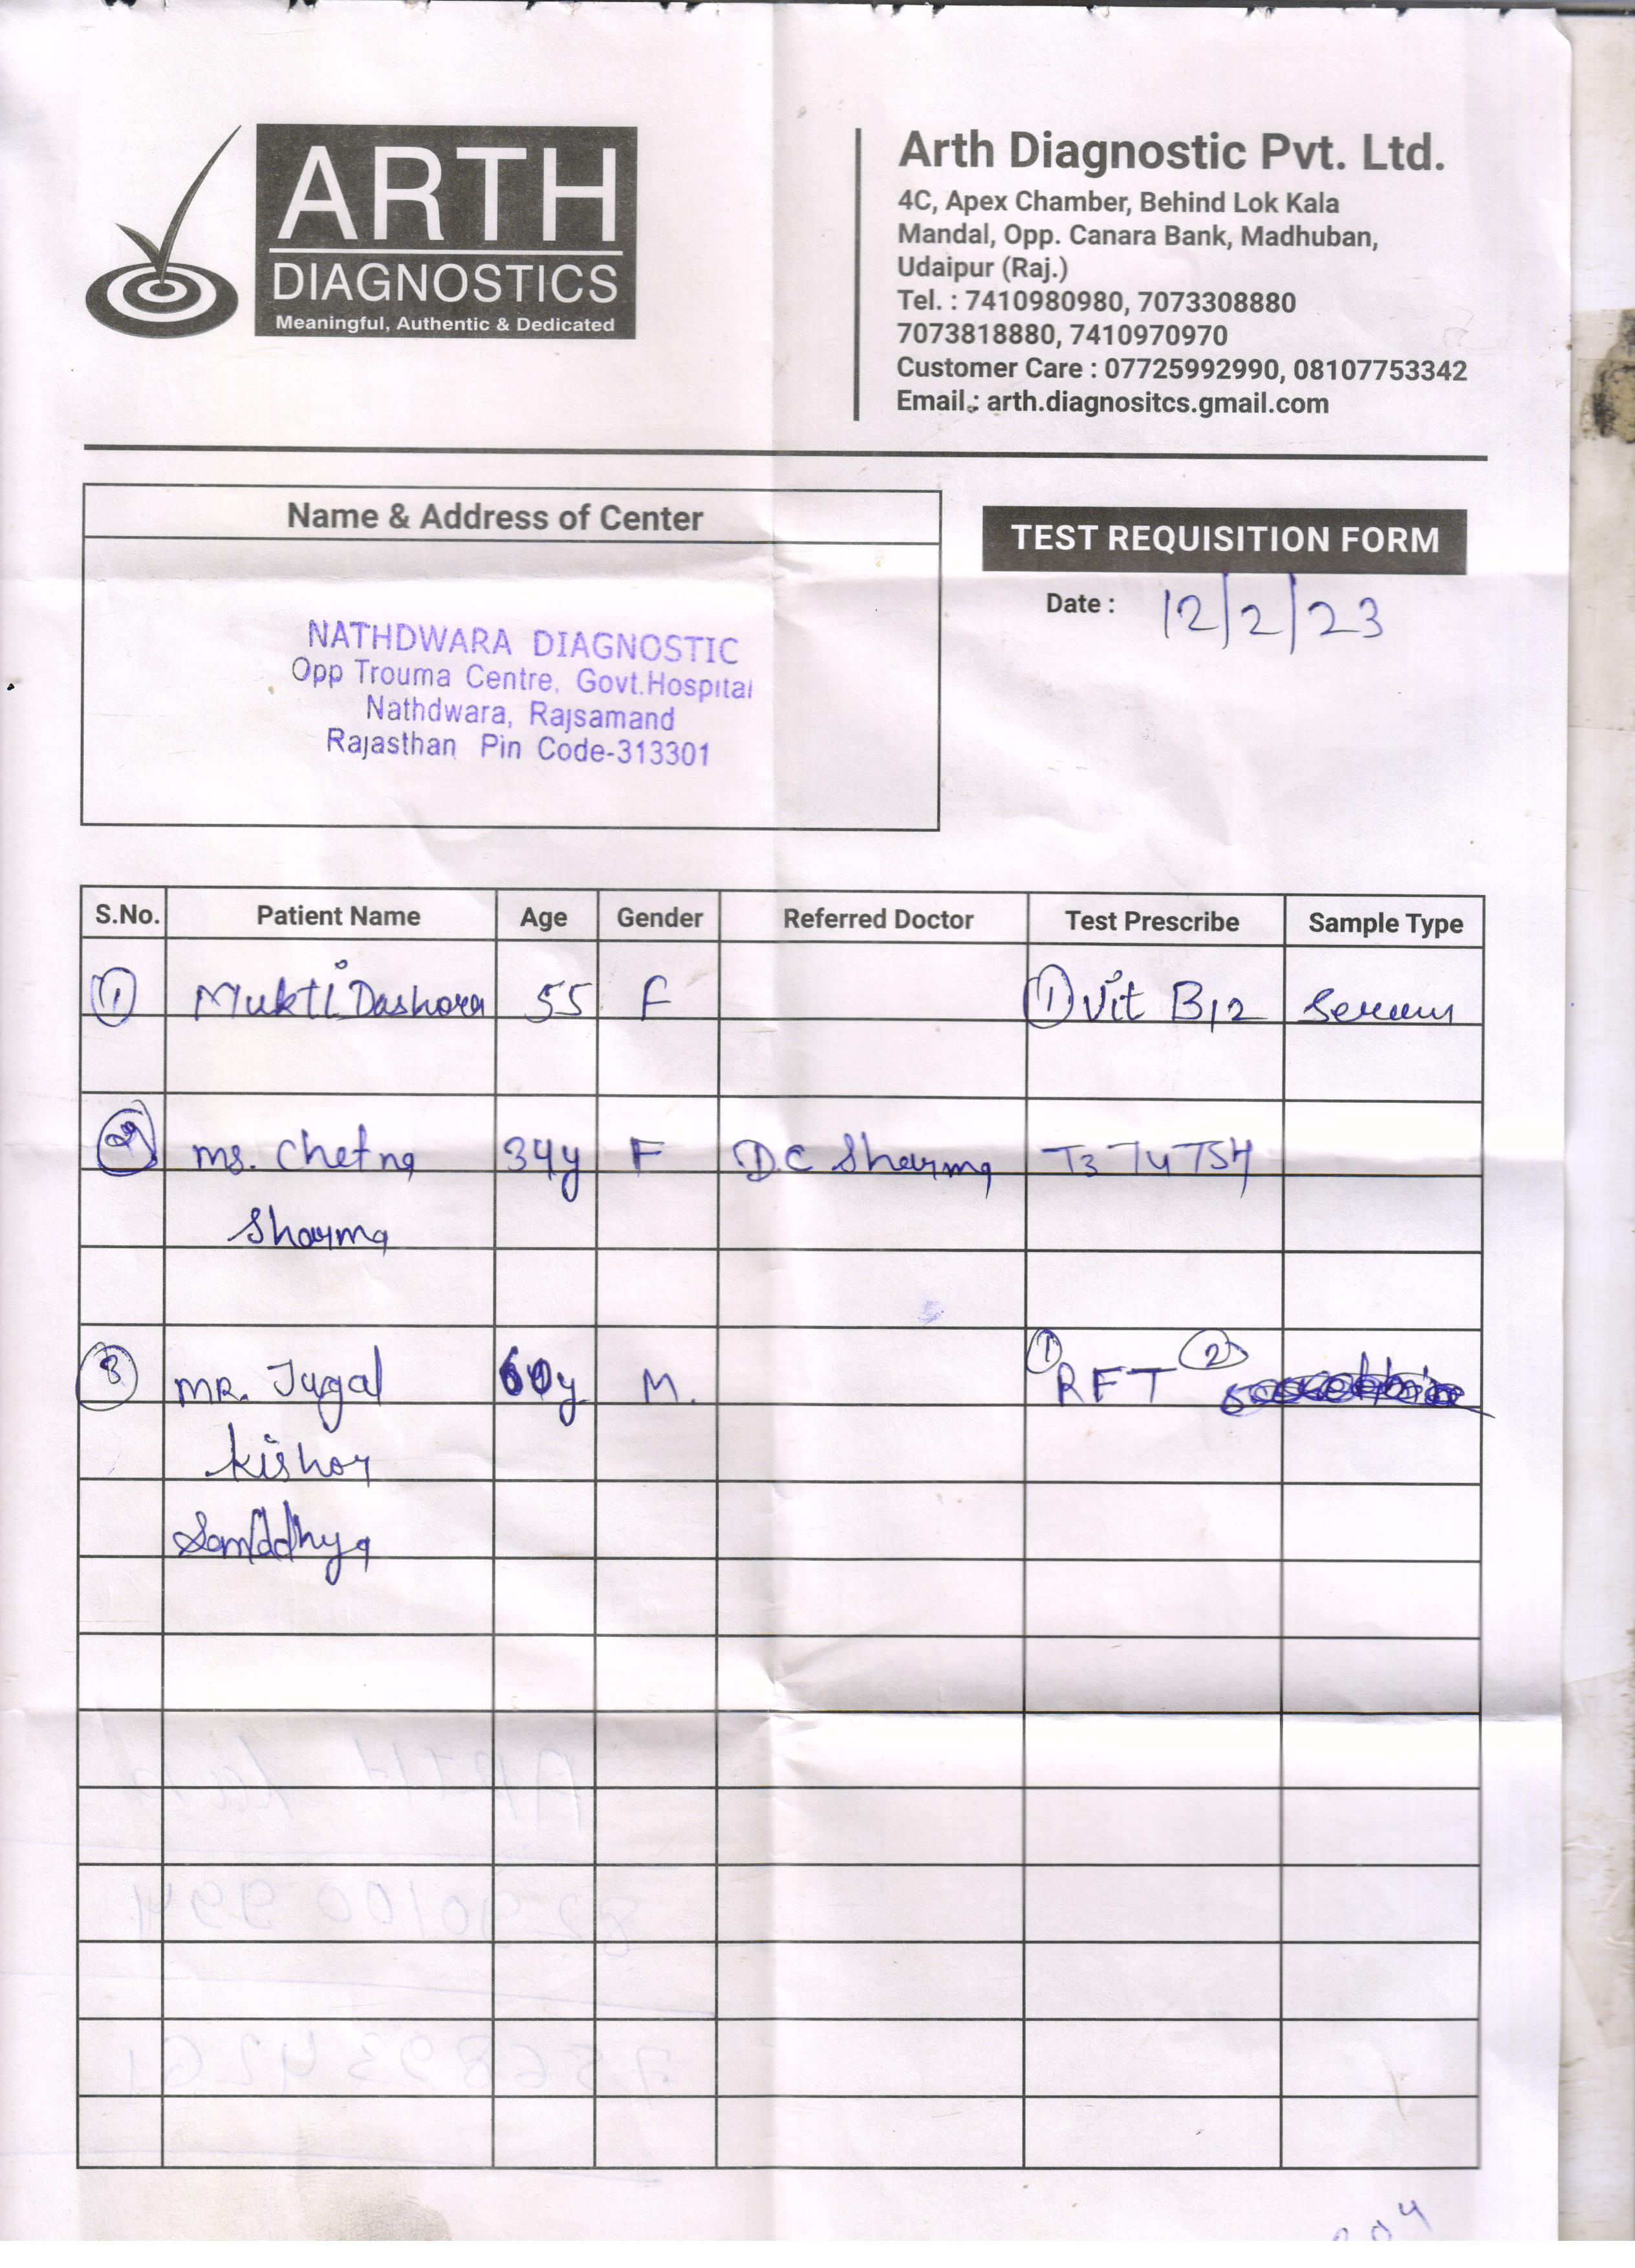 ARTH
DIAGNOSTICS
Meaningful, Authentic & Dedicated
Arth Diagnostic Pvt. Ltd.
4C, Apex Chamber, Behind Lok Kala
Mandal, Opp. Canara Bank, Madhuban,
Udaipur (Raj.)
Tel. : 7410980980, 7073308880
7073818880, 7410970970
Customer Care : 07725992990, 08107753342
Email.: arth.diagnositcs.gmail.com
Name & Address of Center
TEST REQUISITION FORM
Date : 12/2/23
NATHDWARA DIAGNOSTIC
Opp Trouma Centre, Govt.Hospital
Nathdwara, Rajsamand
Rajasthan Pin Code-313301
S.No. Patient Name Age Gender Referred Doctor Test Prescribe Sample Type
1 Mukti Dashora 55 F 1 Vit B12 Serum
2 Ms. Chetna 34y F D.C Sharma T3 T4 TSH
Sharma
3 MR. Jugal 60y M. 1 RFT 2
Kishor